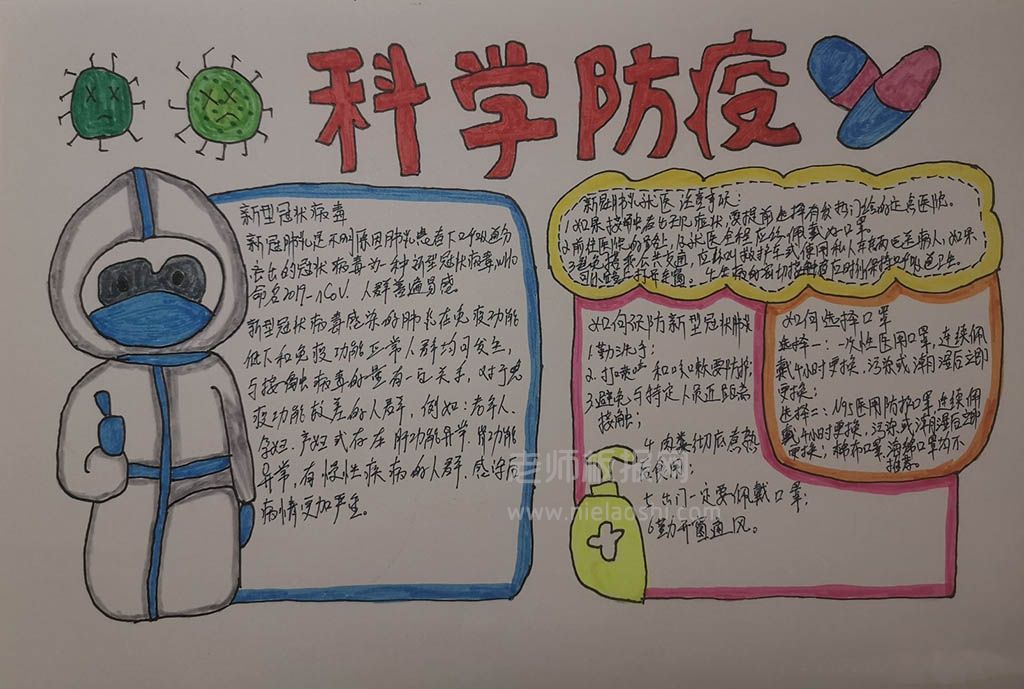 科学防疫
新型冠状病毒
新冠肺炎是不明原因肺炎患者下呼吸道分
离出的冠状病毒为一种新型冠状病毒,WHO
命名2019-nCoV. 人群普遍易感
新型冠状病毒感染的肺炎在免疫功能
低下和免疫功能正常人群均可发生,
与接触病毒的量有一定关系,对于免
疫功能较差的人群,例如:老年人、
孕妇、产妇或存在肝功能异常、肾功能
异常,有慢性疾病的人群.感染后
病情更加严重。
新冠肺炎就医 注意事项:
1.如果接触者出现症状,要提前选择有发热门诊的定点医院。
2.前往医院的路上,及就医全程应该佩戴好口罩。
3.避免搭乘公共交通,应该叫救护车或使用私人车辆运送病人,如果
可以路上打开车窗。 4.生病的密切接触者应时刻保持呼吸道卫生
如何预防新型冠状肺炎
1.勤洗手;
2.打喷嚏和咳嗽要防护;
3.避免与特定人员近距离
接触;
4.肉类彻底煮熟
后食用;
5.出门一定要佩戴口罩;
6.勤开窗通风。
如何选择口罩
选择一:一次性医用口罩,连续佩
戴4小时更换,污染或潮湿后立即
更换;
选择二:N95医用防护口罩,连续佩
戴4小时更换,污染或潮湿后立即
更换,棉布口罩、海绵口罩均不
推荐。
老师板报网
www.nielaoshi.com